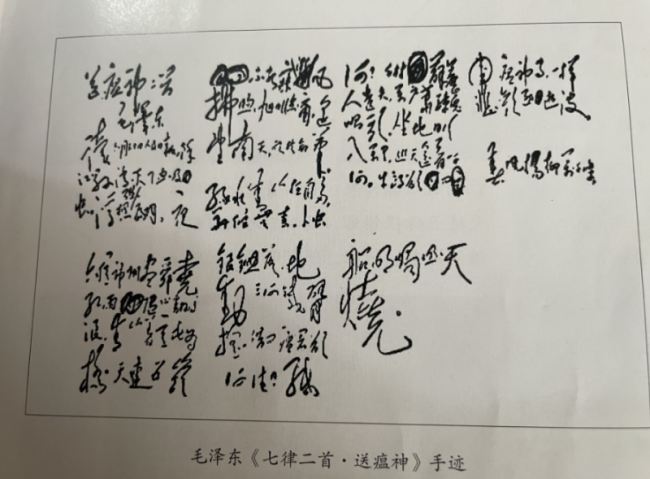 送瘟神二首
毛泽东
浮想联翩,夜
风
拂煦,旭日临窗,遥
望南天,欣然命笔
绿水青山枉自多,
华佗无奈小虫
何!千村薜荔
人遗矢,万户萧疏鬼
唱歌。坐地日行
八万里,巡天遥看一千
河。牛郎欲问
瘟神事,一样
悲欢逐逝波。
春风杨柳万千条
六亿神州尽舜尧
红雨
浪,青山着意化为
桥 天连五岭
银锄落,地
动三河铁臂
摇。借问瘟君欲
何往?纸
船明烛照天
烧。
毛泽东《七律二首·送瘟神》手迹